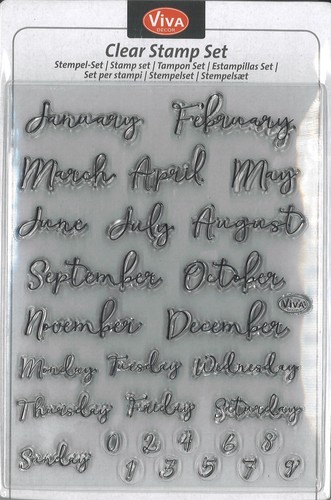 ViVA
DECOR
Clear Stamp Set
Stempel-Set | Stamp set | Tampon Set | Estampillas Set |
Set per stampi | Stempelset | Stempelsæt
January February
March April May
June July August
September October
ViVA
November December
Monday Tuesday Wednesday
Thursday Friday Saturday
Sunday 0 2 4 6 8
1 3 5 7 9